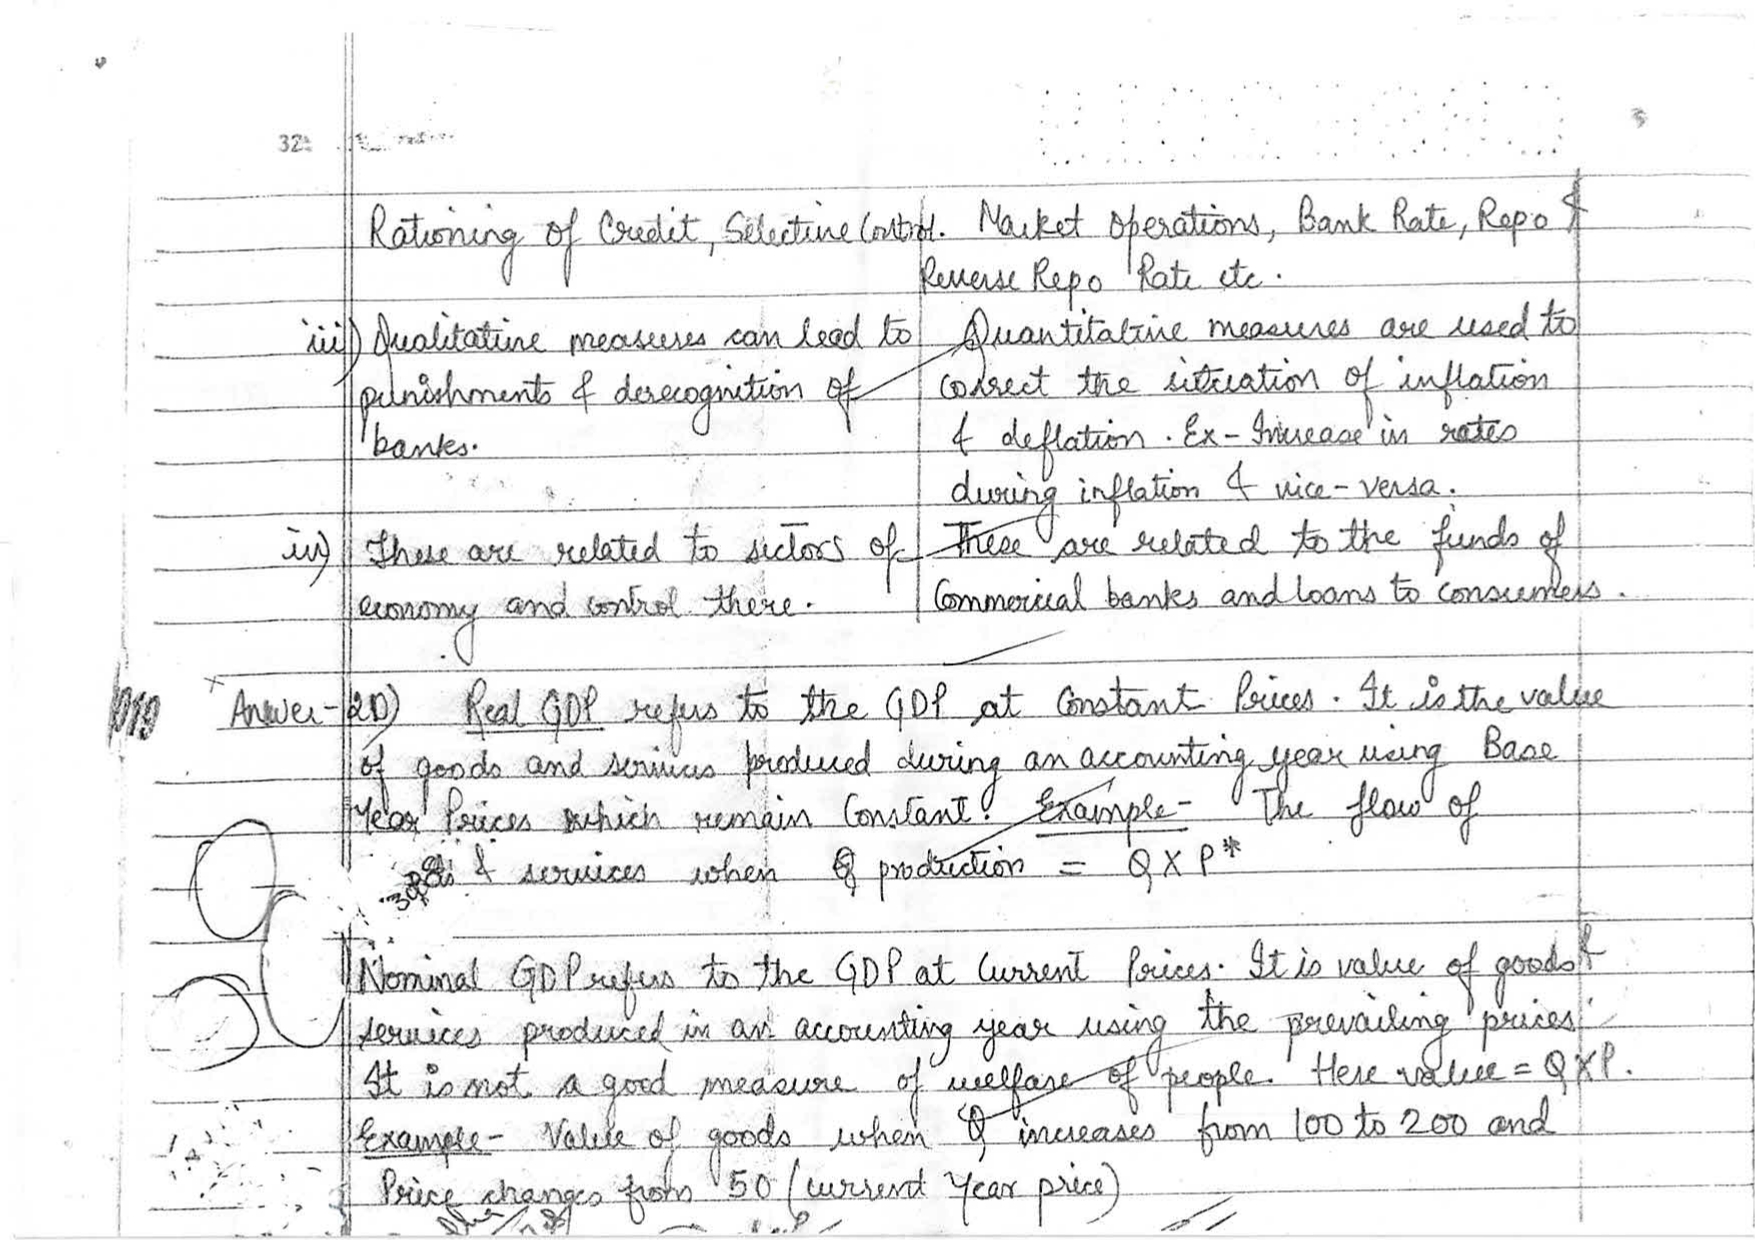 32
Rationing of Credit, Selective Control. Market Operations, Bank Rate, Repo &
Reverse Repo Rate etc.
iii) Qualitative measures can lead to Quantitative measures are used to
punishments & derecognition of correct the situation of inflation
banks. & deflation. Ex- Increase in rates
during inflation & vice-versa.
iv) These are related to sectors of These are related to the funds of
economy and control there. Commercial banks and loans to consumers.
Answer-2D) Real GDP refers to the GDP at Constant Prices. It is the value
of goods and services produced during an accounting year using Base
Year Prices which remain Constant. Example- The flow of
& services when Q production = Q X P*
Nominal GDP refers to the GDP at Current Prices. It is value of goods &
services produced in an accounting year using the prevailing prices
It is not a good measure of welfare of people. Here value = Q X P.
Example- Value of goods when Q increases from 100 to 200 and
Price changes from 50 (current year price)